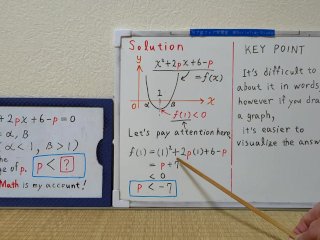 + 2px + 6-p = 0
= α, β
α < 1, β > 1)
the
ge of p.
p < ?
Math is my account!
Solution
x²+2px+6-p
=f(x)
y
1
0
α
β
x
f(1) < 0
Let's pay attention here
f(1) = (1)²+2p(1)+6-p
= p + 7
< 0
p < -7
KEY POINT
It's difficult to
about it in words
however if you dra
a graph,
it's easier to
visualize the answ